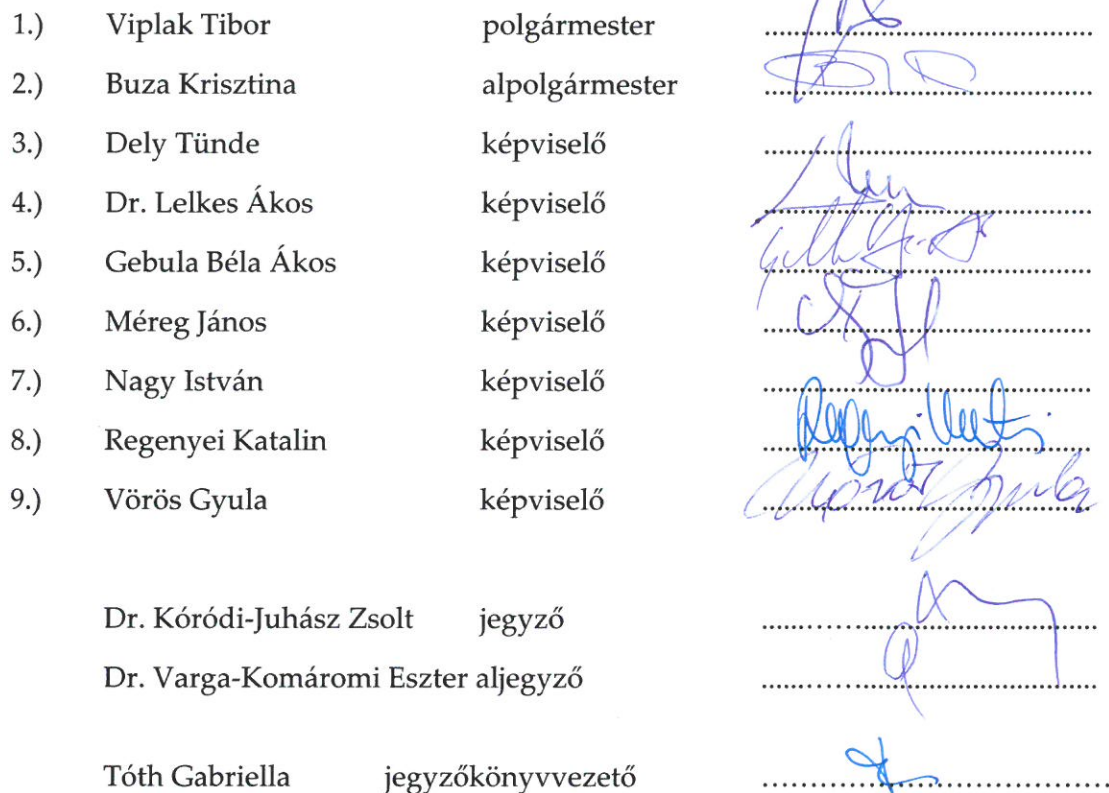 1.) Viplak Tibor polgármester
2.) Buza Krisztina alpolgármester
3.) Dely Tünde képviselő
4.) Dr. Lelkes Ákos képviselő
5.) Gebula Béla Ákos képviselő
6.) Méreg János képviselő
7.) Nagy István képviselő
8.) Regenyei Katalin képviselő
9.) Vörös Gyula képviselő
Dr. Kóródi-Juhász Zsolt jegyző
Dr. Varga-Komáromi Eszter aljegyző
Tóth Gabriella jegyzőkönyvvezető